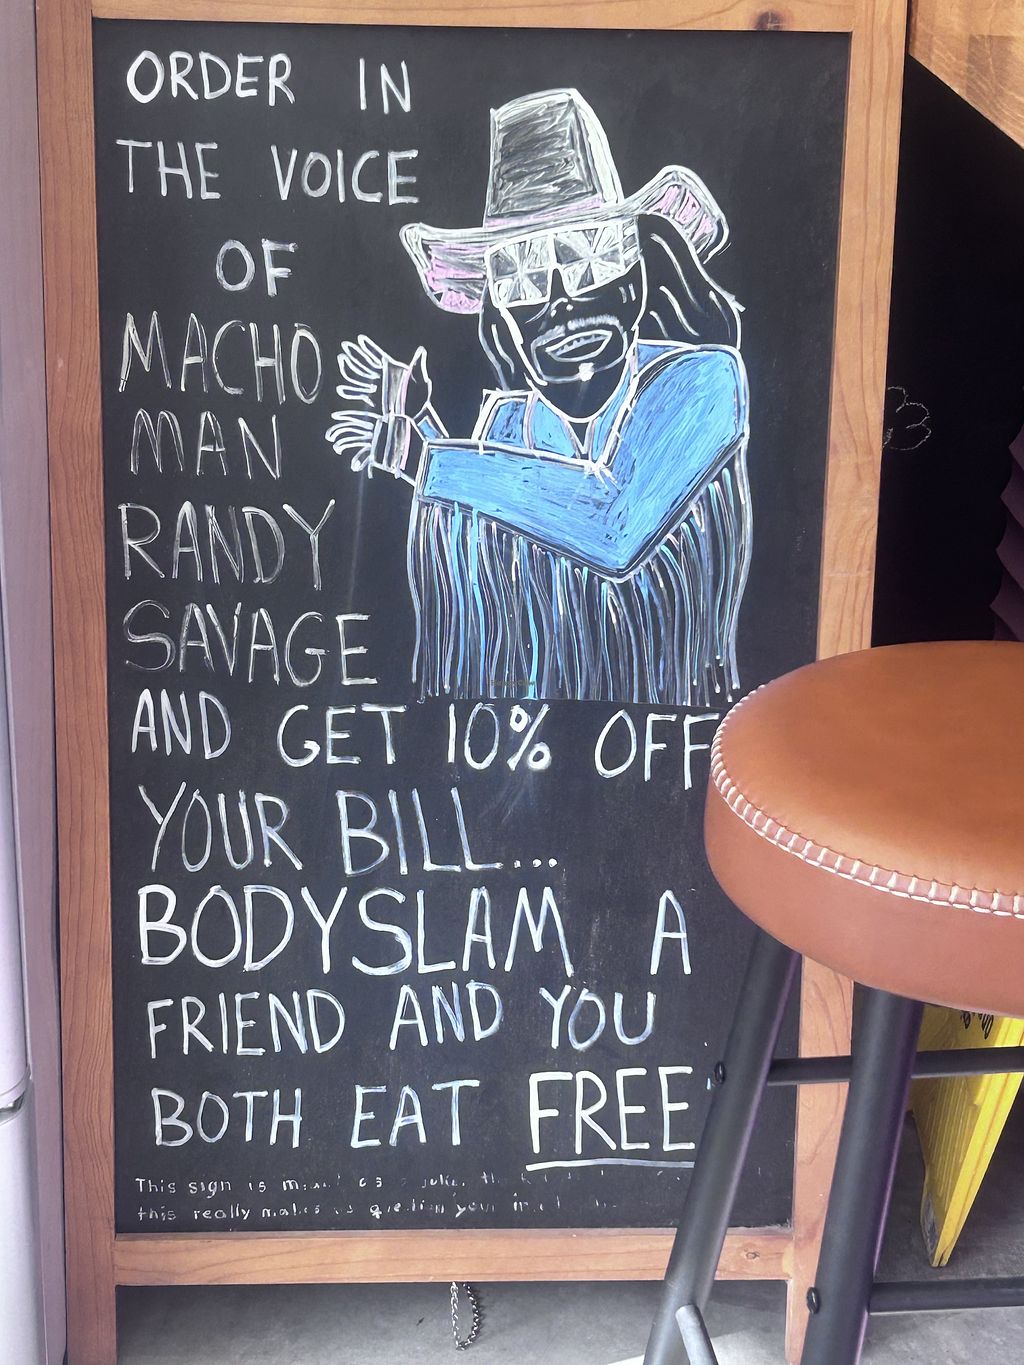 ORDER IN
THE VOICE
OF
MACHO
MAN
RANDY
SAVAGE
AND GET 10% OFF
YOUR BILL...
BODYSLAM A
FRIEND AND YOU
BOTH EAT FREE
This sign is as a
this really makes us question your